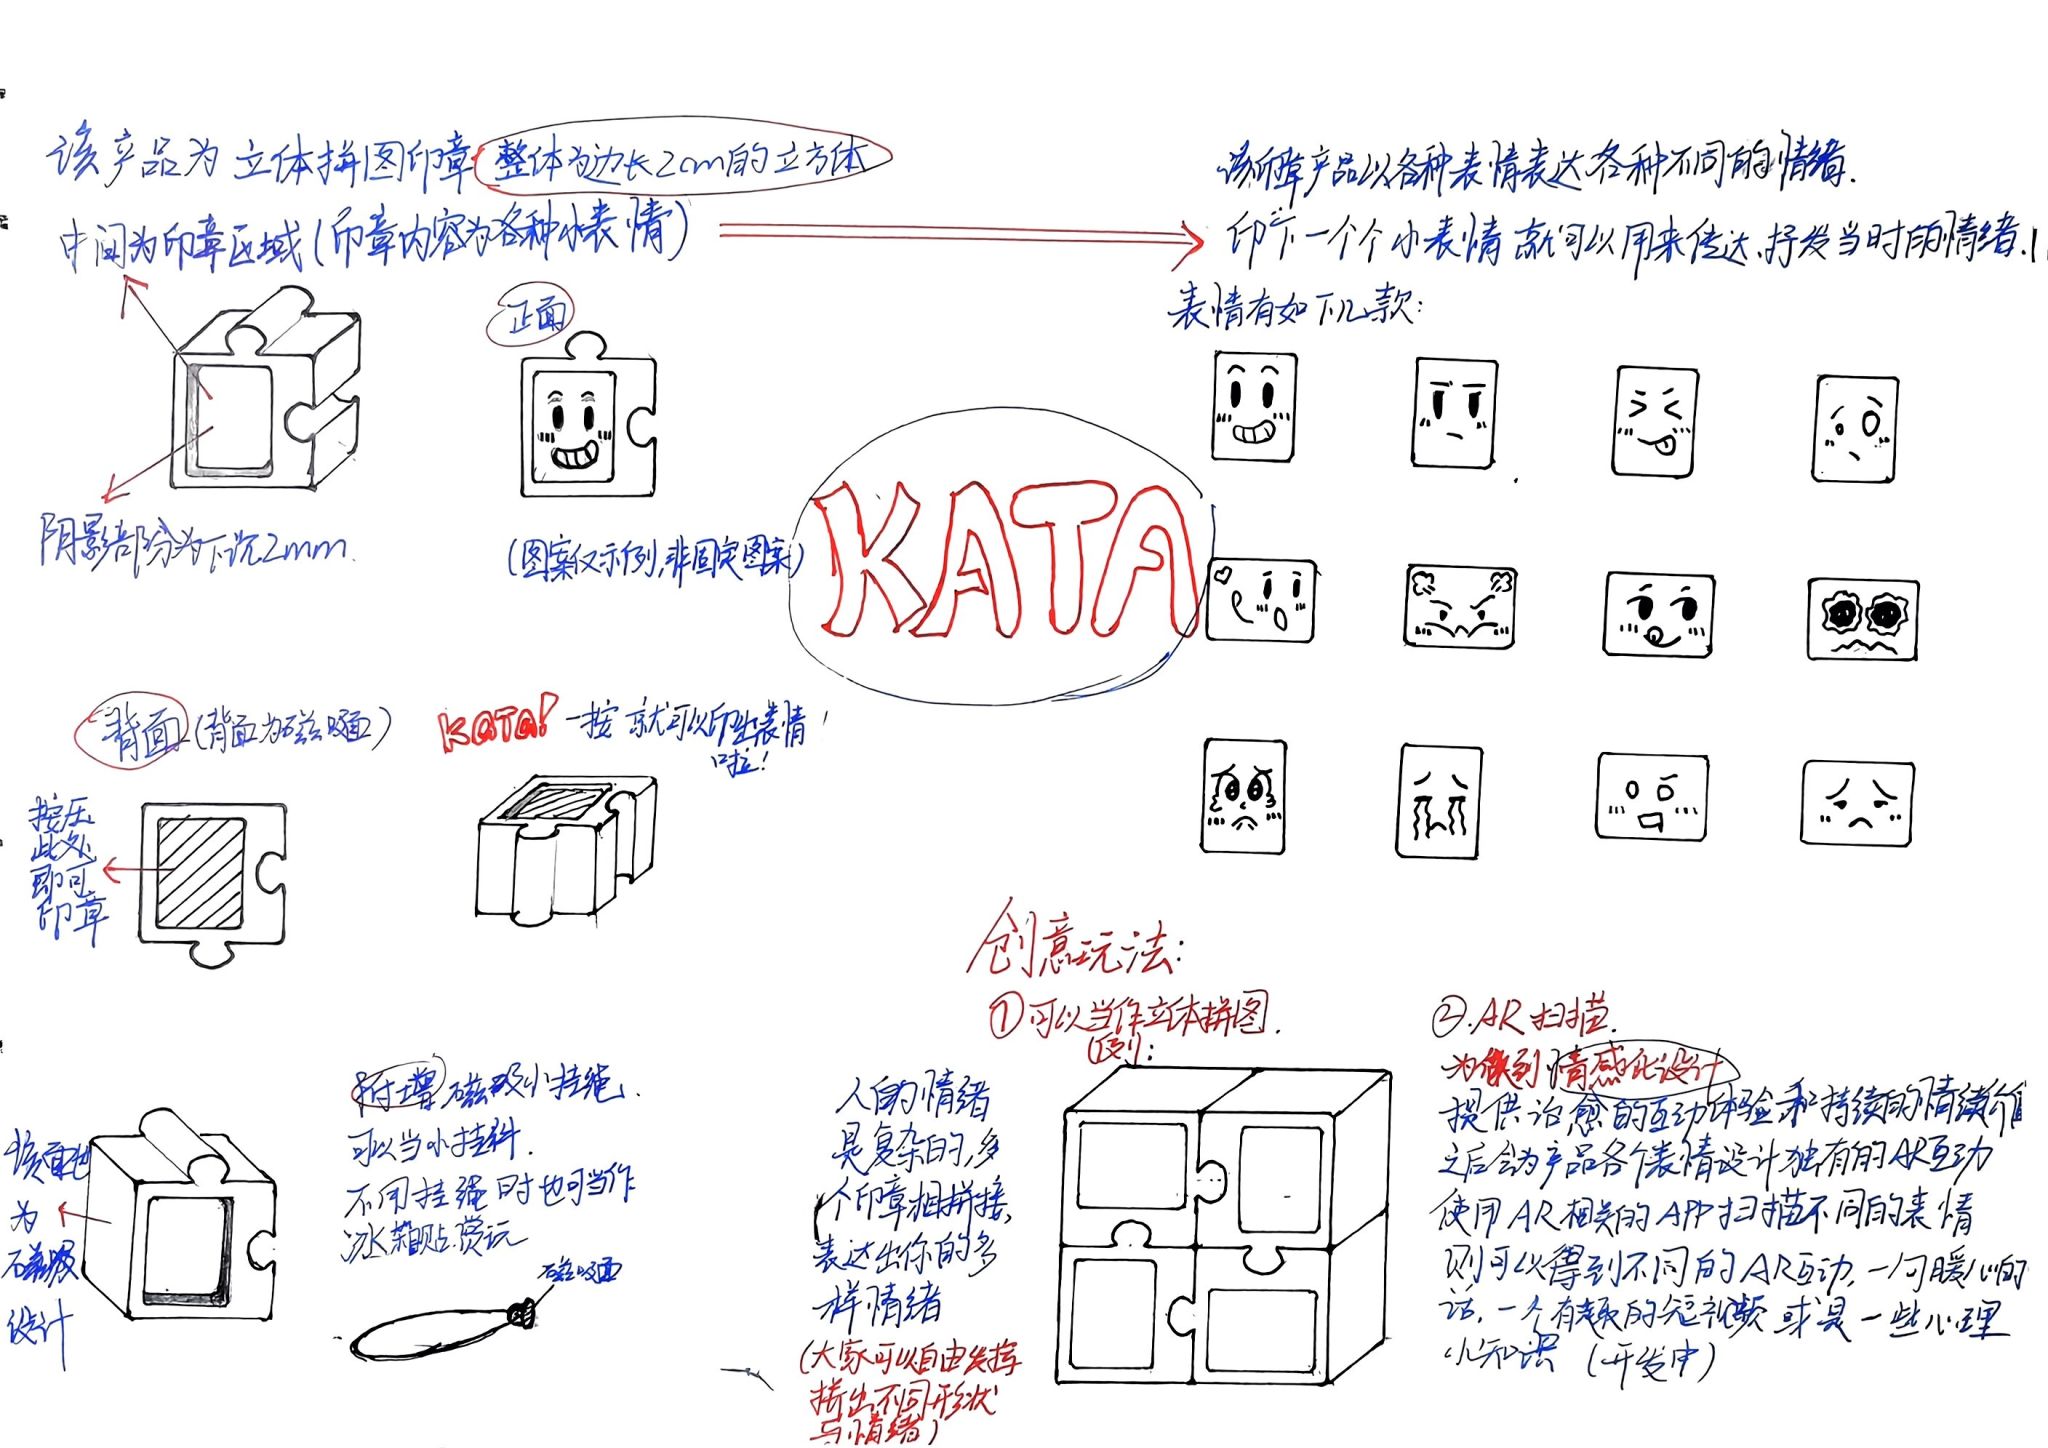 该产品为立体拼图印章 整体为边长2cm的立方体
中间为印章区域(印章内容为各种小表情)
该印章产品以各种表情表达各种不同的情绪.
印下一个个小表情就可以用来传达、抒发当时的情绪.
表情有如下几款:
正面
阴影部分为下沉2mm.
(图案仅示例,非固定图案)
KATA
背面 (背面为磁吸面)
KATA! 一按 就可以印出表情
啦!
按压
此处
即可
印章
创意玩法:
①可以当作立体拼图.
②.AR扫描.
为做到情感化设计
提供治愈的互动体验和持续的情绪价值
之后会为产品各个表情设计独有的AR互动
使用AR相关的APP扫描不同的表情
则可以得到不同的AR互动,一句暖心的
话,一个有趣的短视频或是一些心理
小知识 (开发中)
人的情绪
是复杂的,多
个印章相拼接,
表达出你的多
样情绪
(大家可以自由发挥
拼出不同形状
与情绪)
附增磁吸小挂绳.
可以当小挂件.
不用挂绳时也可当作
冰箱贴赏玩
磁吸面
为
磁吸
设计